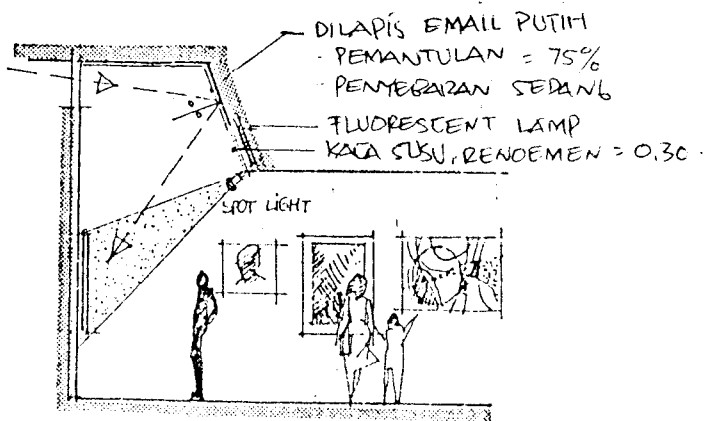 DILAPIS EMAIL PUTIH
- PEMANTULAN = 75%
- PENYEBARAN SEDANG
FLUORESCENT LAMP
KACA SUSU, RENDEMEN = 0.30.
SPOT LIGHT